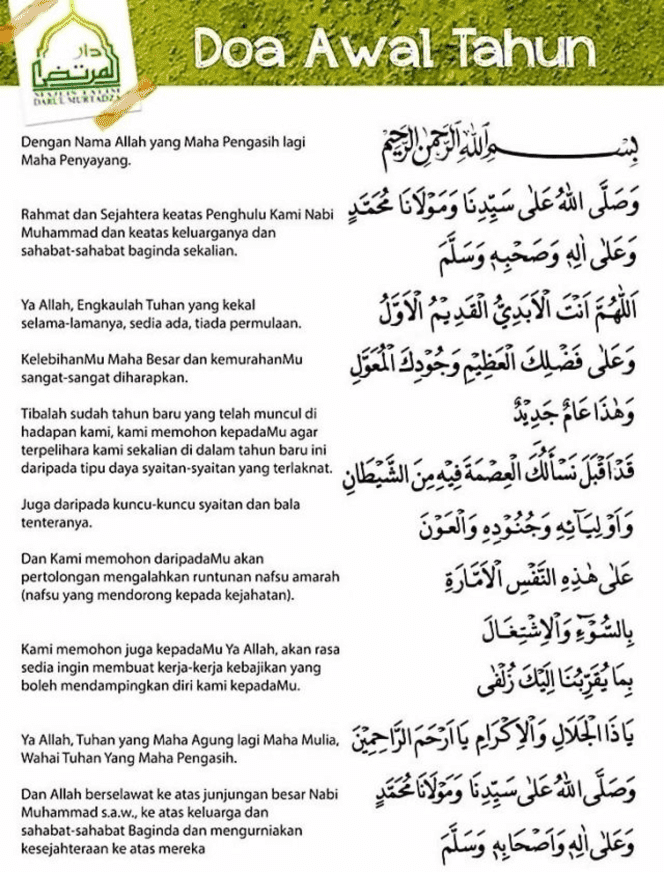 دار
المرتضى
DARUL MURTADZA
Doa Awal Tahun
Dengan Nama Allah yang Maha Pengasih lagi
Maha Penyayang.
Rahmat dan Sejahtera keatas Penghulu Kami Nabi
Muhammad dan keatas keluarganya dan
sahabat-sahabat baginda sekalian.
Ya Allah, Engkaulah Tuhan yang kekal
selama-lamanya, sedia ada, tiada permulaan.
KelebihanMu Maha Besar dan kemurahanMu
sangat-sangat diharapkan.
Tibalah sudah tahun baru yang telah muncul di
hadapan kami, kami memohon kepadaMu agar
terpelihara kami sekalian di dalam tahun baru ini
daripada tipu daya syaitan-syaitan yang terlaknat.
Juga daripada kuncu-kuncu syaitan dan bala
tenteranya.
Dan Kami memohon daripadaMu akan
pertolongan mengalahkan runtunan nafsu amarah
(nafsu yang mendorong kepada kejahatan).
Kami memohon juga kepadaMu Ya Allah, akan rasa
sedia ingin membuat kerja-kerja kebajikan yang
boleh mendampingkan diri kami kepadaMu.
Ya Allah, Tuhan yang Maha Agung lagi Maha Mulia,
Wahai Tuhan Yang Maha Pengasih.
Dan Allah berselawat ke atas junjungan besar Nabi
Muhammad s.a.w., ke atas keluarga dan
sahabat-sahabat Baginda dan mengurniakan
kesejahteraan ke atas mereka
بِسْمِ اللهِ الرَّحْمٰنِ الرَّحِيْمِ
وَصَلَّى اللهُ عَلٰى سَيِّدِنَا وَمَوْلَانَا مُحَمَّدٍ
وَعَلٰى اٰلِهٖ وَصَحْبِهٖ وَسَلَّمَ
اَللّٰهُمَّ اَنْتَ الْاَبَدِيُّ الْقَدِيْمُ الْاَوَّلُ
وَعَلٰى فَضْلِكَ الْعَظِيْمِ وَجُوْدِكَ الْمُعَوَّلِ
وَهٰذَا عَامٌ جَدِيْدٌ
قَدْ اَقْبَلَ نَسْأَلُكَ الْعِصْمَةَ فِيْهِ مِنَ الشَّيْطَانِ
وَاَوْلِيَآئِهٖ وَجُنُوْدِهٖ وَالْعَوْنَ
عَلٰى هٰذِهِ النَّفْسِ الْاَمَّارَةِ
بِالسُّوْٓءِ وَالْاِشْتِغَالَ
بِمَا يُقَرِّبُنَا اِلَيْكَ زُلْفٰى
يَا ذَا الْجَلَالِ وَالْاِكْرَامِ يَا اَرْحَمَ الرَّاحِمِيْنَ
وَصَلَّى اللهُ عَلٰى سَيِّدِنَا وَمَوْلَانَا مُحَمَّدٍ
وَعَلٰى اٰلِهٖ وَاَصْحَابِهٖ وَسَلَّمَ